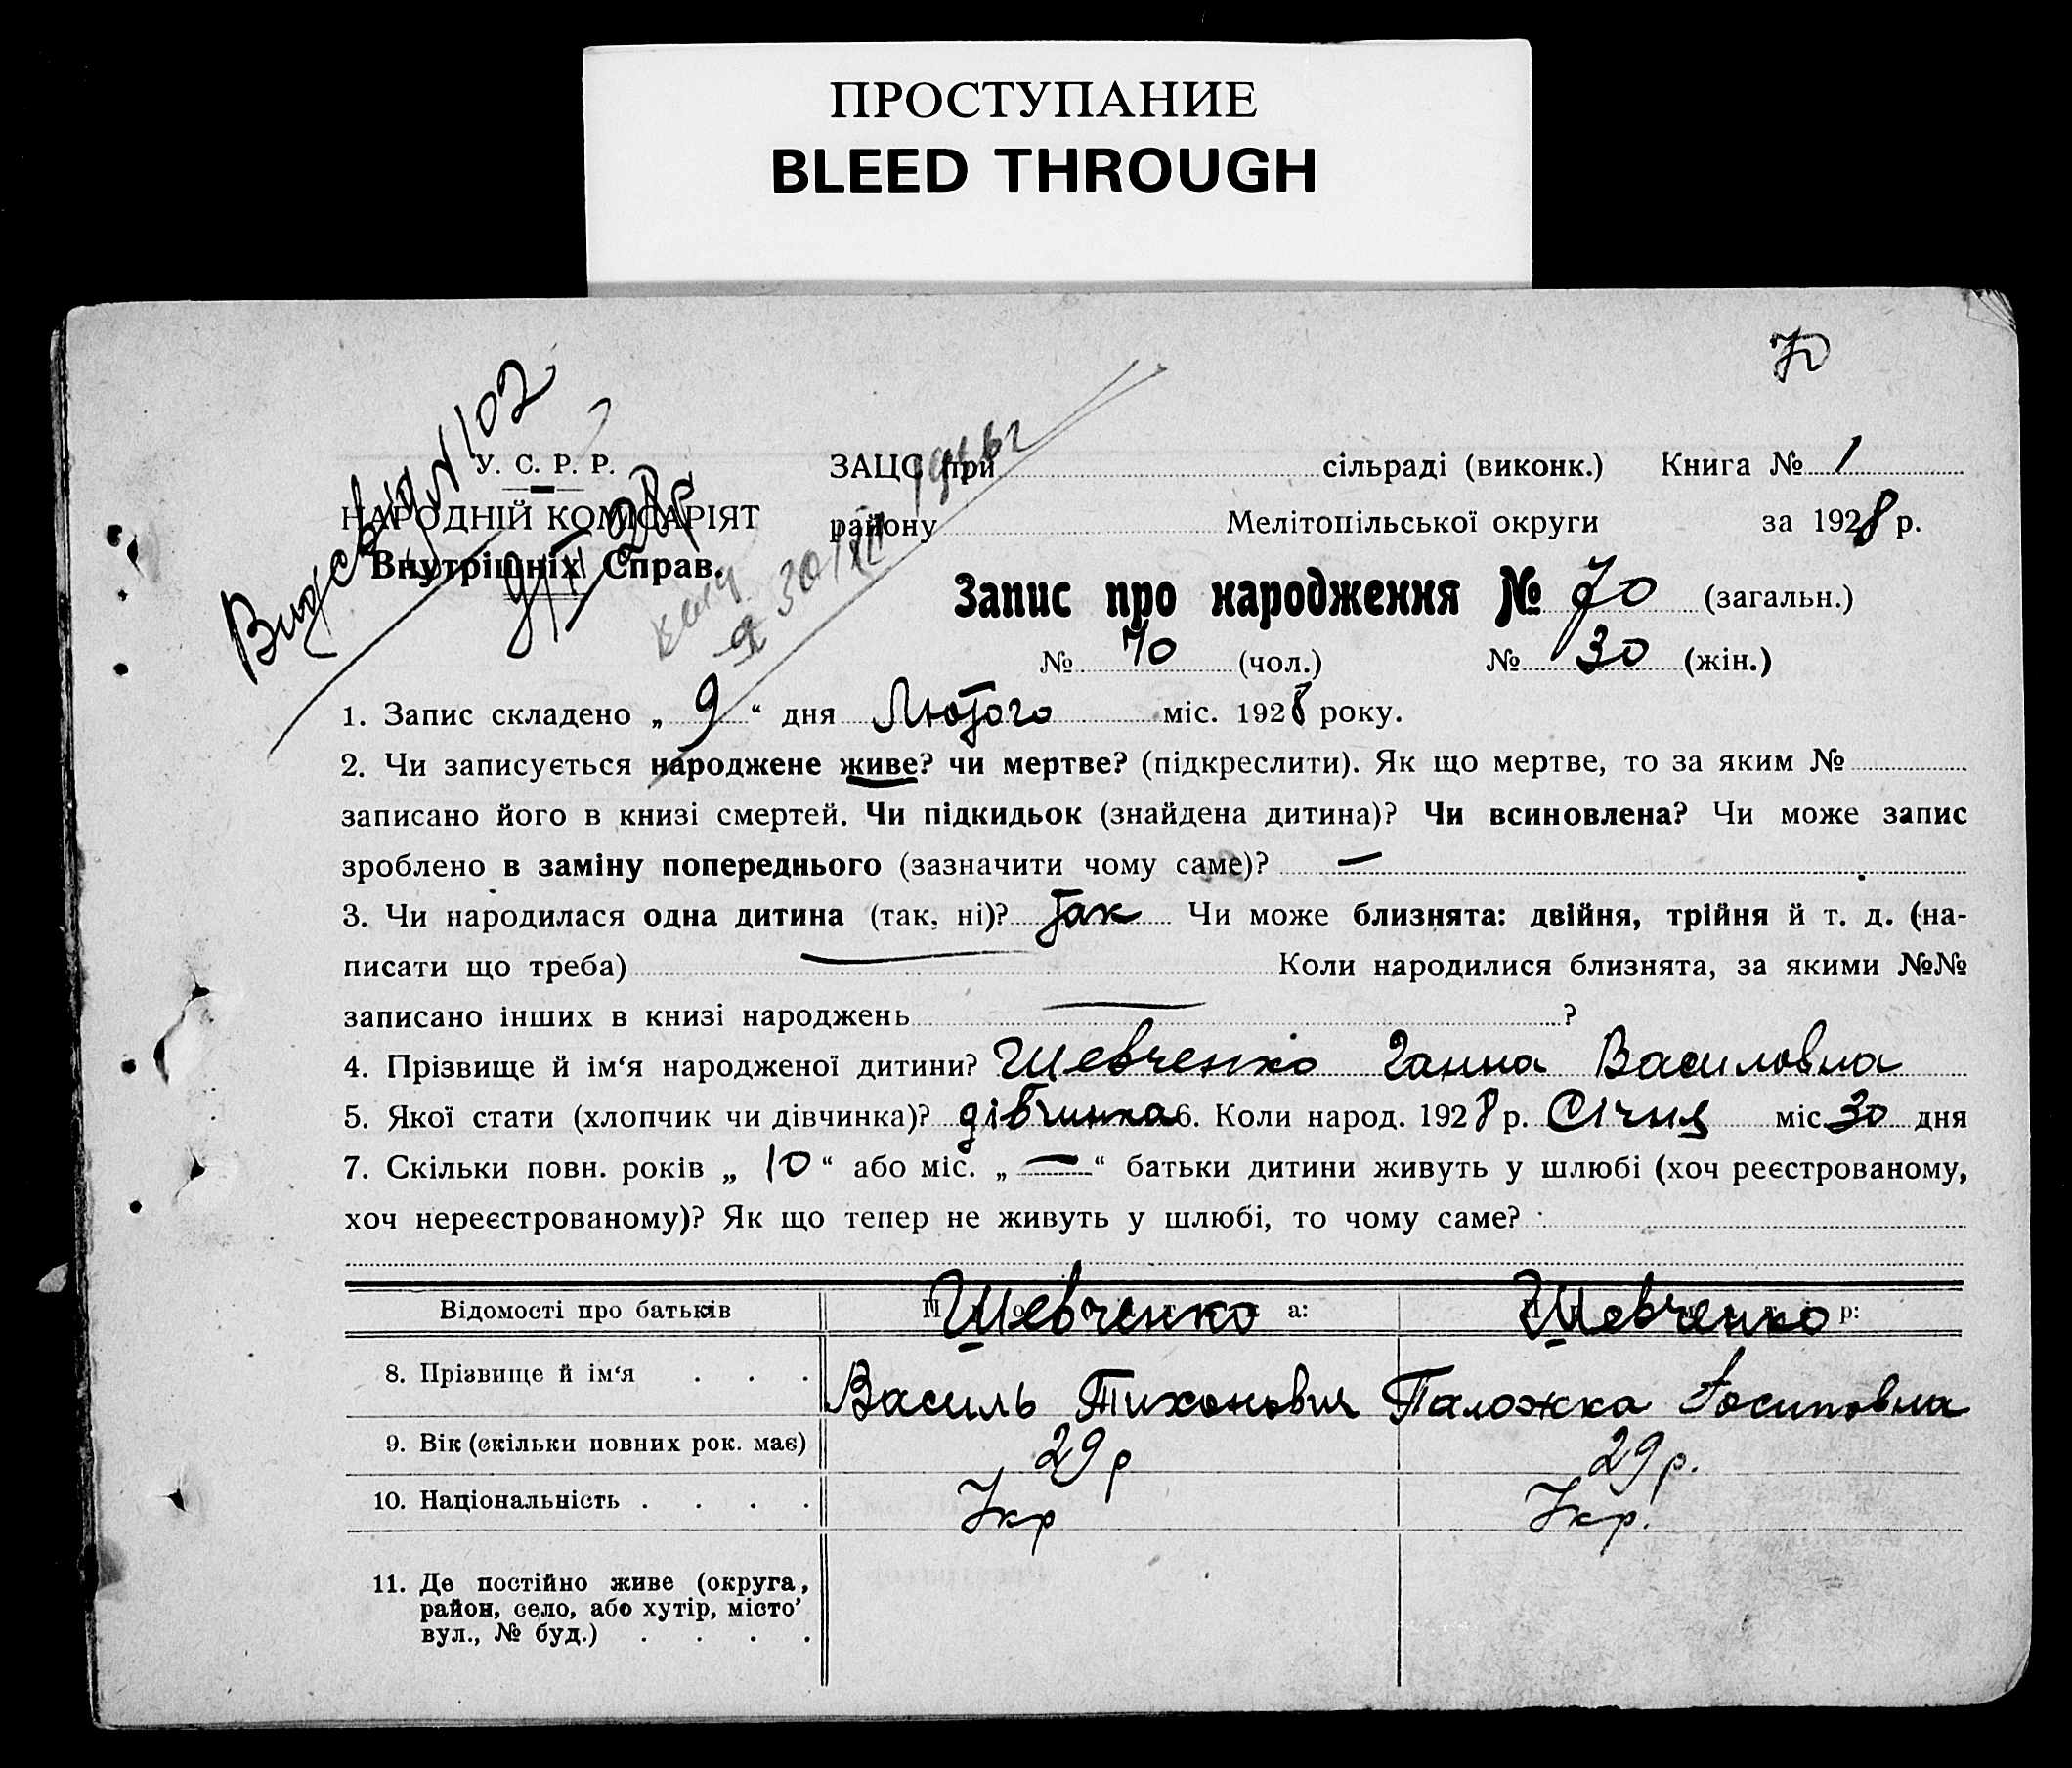 ПРОСТУПАНИЕ
BLEED THROUGH
70
N 102
У. С. Р. Р.
НАРОДНІЙ КОМІСАРІЯТ
Внутрішніх Справ.
ЗАЦС при сільраді (виконк.) Книга № 1
району Мелітопільської округи за 1928 р.
30/XII
Запис про народження № 70 (загальн.)
№ 40 (чол.) № 30 (жін.)
1. Запис складено „ 9 “ дня Лютого міс. 1928 року.
2. Чи записується народжене живе? чи мертве? (підкреслити). Як що мертве, то за яким №
записано його в книзі смертей. Чи підкидьок (знайдена дитина)? Чи всиновлена? Чи може запис
зроблено в заміну попереднього (зазначити чому саме)? —
3. Чи народилася одна дитина (так, ні)? Так Чи може близнята: двійня, трійня й т. д. (на-
писати що треба) — Коли народилися близнята, за якими №№
записано інших в книзі народжень — ?
4. Прізвище й ім‘я народженої дитини? Шевченко Ганна Василовна
5. Якої стати (хлопчик чи дівчинка)? дівчинка 6. Коли народ. 1928 р. Січня міс. 30 дня
7. Скільки повн. років „ 10 “ або міс. „ — “ батьки дитини живуть у шлюбі (хоч реєстрованому,
хоч нереєстрованому)? Як що тепер не живуть у шлюбі, то чому саме?
Відомості про батьків Шевченко а: Шевченко р:
8. Прізвище й ім‘я . . . Василь Тихонович Паложка Йосиповна
9. Вік (скільки повних рок. має) 29 р 29 р.
10. Національність . . . . Укр Укр.
11. Де постійно живе (округа,
район, село, або хутір, місто,
вул., № буд.) . . . .